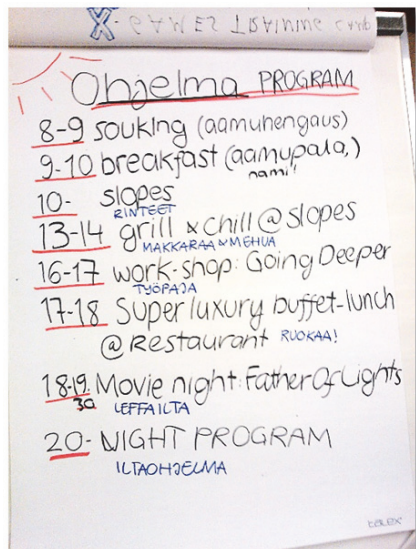 X-GAMES TRAINING CAMP
Ohjelma PROGRAM
8-9 souking (aamuhengaus)
9-10 breakfast (aamupala,)
nami!
10- slopes
RINTEET
13-14 grill & chill @ slopes
MAKKARAA & MEHUA
16-17 work-shop: Going Deeper
TYÖPAJA
17-18 Super luxury buffet-lunch
@ Restaurant RUOKAA!
18-19.30 Movie night: Father Of Lights
LEFFAILTA
20- NIGHT PROGRAM
ILTAOHJELMA